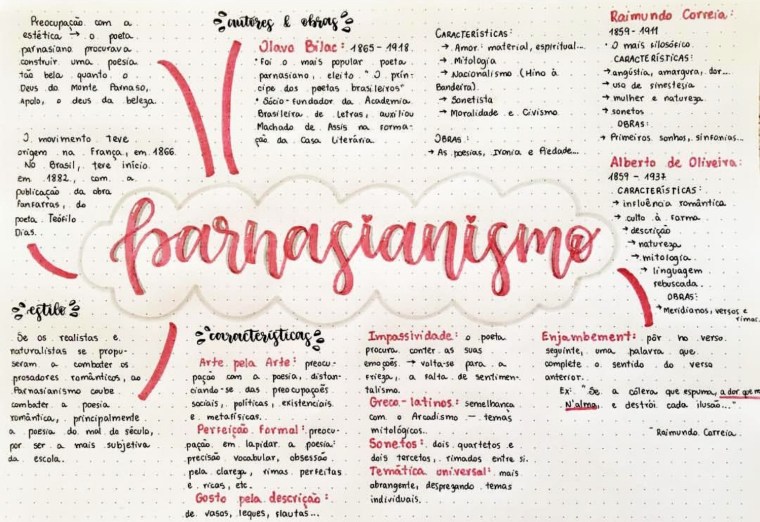 Preocupação com a
estética → o poeta
parnasiano procurava
construir uma poesia
tão bela quanto o
Deus do Monte Parnaso,
Apolo, o deus da beleza.
O movimento teve
origem na França, em 1866.
No Brasil, teve início
em 1882, com a
publicação da obra
Fanfarras, do
poeta Teófilo
Dias.
autores & obras
Olavo Bilac: 1865-1918.
• Foi o mais popular poeta
parnasiano, eleito "O prín-
cipe dos poetas brasileiros"
• Sócio-fundador da Academia
Brasileira de Letras, auxiliou
Machado de Assis na forma-
ção da Casa Literária.
CARACTERÍSTICAS:
→ Amor: material, espiritual...
→ Mitologia
→ Nacionalismo (Hino à
Bandeira)
→ Sonetista
→ Moralidade e Civismo.
OBRAS:
→ As poesias, Ironia e Piedade...
Raimundo Correia:
1859 - 1911
• O mais filosófico.
CARACTERÍSTICAS:
→ angústia, amargura, dor...
→ uso de sinestesia
→ mulher e natureza
→ sonetos
OBRAS:
→ Primeiros sonhos, sinfonias...
Alberto de Oliveira:
1859 - 1937
CARACTERÍSTICAS:
→ influência romântica
→ culto à forma
→ descrição
→ natureza
→ mitologia
→ linguagem
rebuscada.
OBRAS:
→ Meridianos, versos e
rimas
parnasianismo
estilo
Se os realistas e
naturalistas se propu-
seram a combater os
prosadores românticos, ao
Parnasianismo coube
combater a poesia
romântica, principalmente
a poesia do mal do século,
por ser a mais subjetiva
da escola.
características
Arte pela Arte: preocu-
pação com a poesia, distan-
ciando-se das preocupações
sociais, políticas, existenciais
e metafísicas.
Perfeição formal: preocu-
pação em lapidar a poesia:
precisão vocabular, obsessão
pela clareza, rimas perfeitas
e ricas, etc.
Gosto pela descrição:
de vasos, leques, flautas...
Impassividade: o poeta
procura conter as suas
emoções → volta-se para a
frieza, a falta de sentimen-
talismo.
Greco-latinos: semelhança
com o Arcadismo → temas
mitológicos.
Sonetos: dois quartetos e
dois tercetos, rimados entre si.
Temática universal: mais
abrangente, desprezando temas
individuais.
Enjambement: pôr no verso
seguinte, uma palavra que
complete o sentido do verso
anterior.
Ex: "Se a cólera que espuma, a dor que m
N'alma, e destrói cada ilusão..."
"Raimundo Correia.